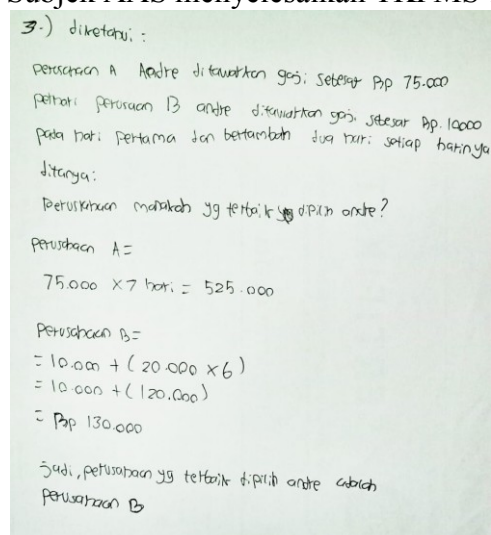 Subjek AAS menyelesaikan TKPMS
3.) diketahui :
perusahaan A Andre ditawarkan gaji sebesar Rp 75.000
perhari perusaan B andre ditawarkan gaji sebesar Rp. 10000
pada hari pertama dan bertambah dua hari setiap harinya
ditanya:
Perusahaan manakah yg terbaik yg dipilih andre?
perusahaan A=
75.000 x7 hari = 525.000
Perusahaan B=
= 10.000 + (20.000 x6)
= 10.000 + (120.000)
= Rp 130.000
jadi, perusahaan yg terbaik dipilih andre adalah
perusahaan B